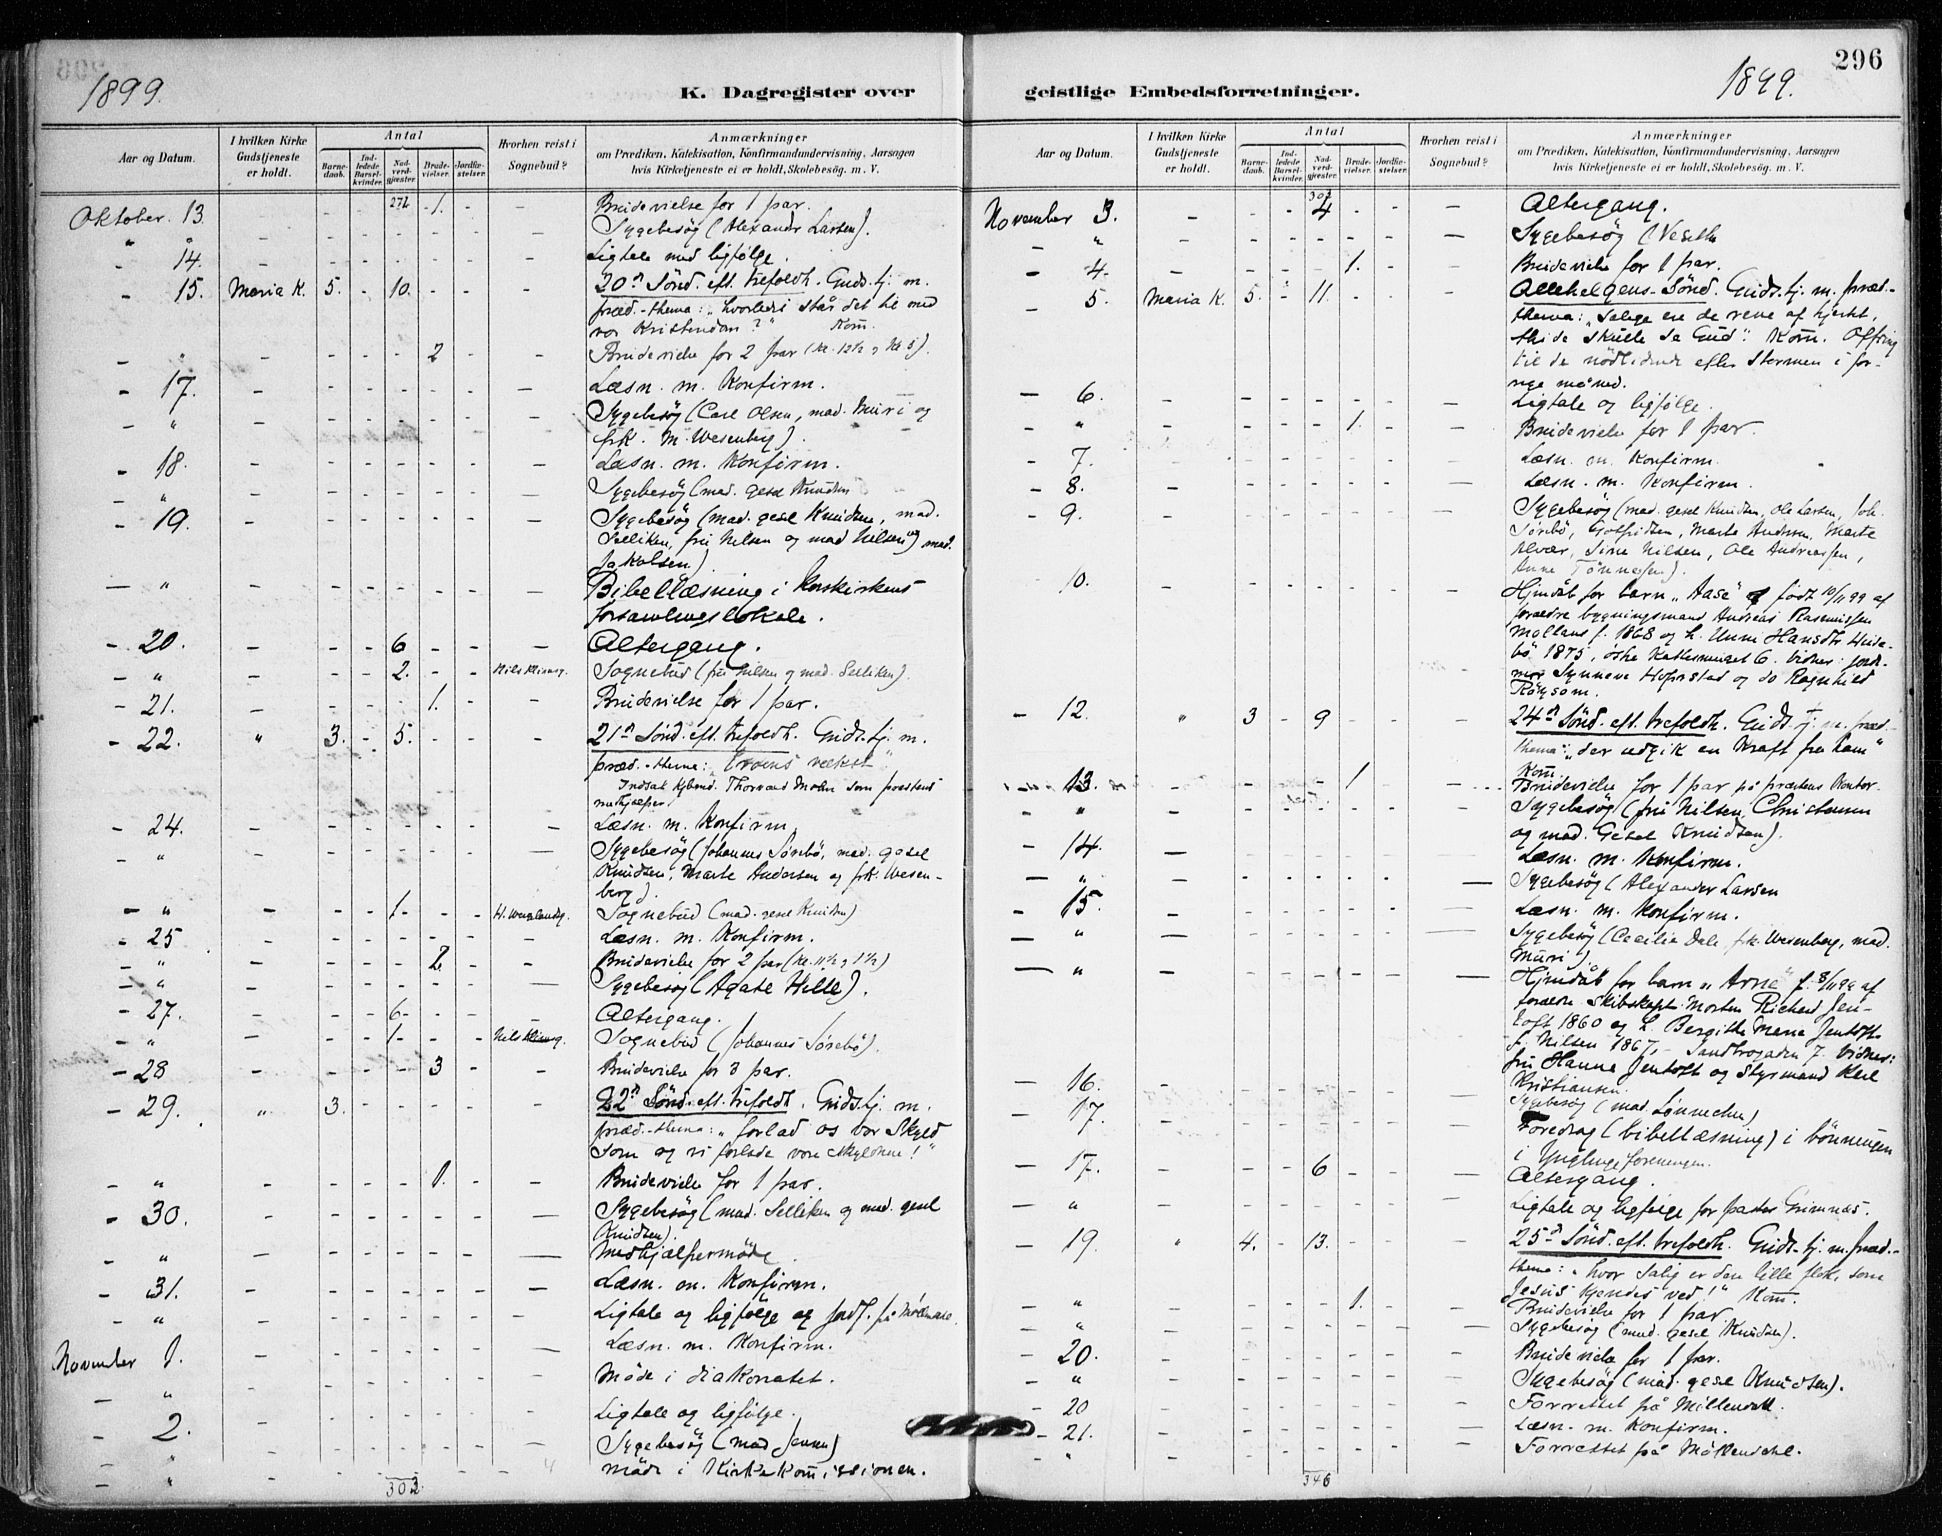 1899.
K. Dagregister over
Aar og Datum.
I hvilken Kirke Gudstjeneste er holdt.
Antal
Barnedaab.
Indledede Barselkvinder.
Nadverdgjæster.
Brudevielser.
Jordfæstelser.
Hvorhen reist i Sognebud?
Anmærkninger
om Prædiken, Katekisation, Konfirmandundervisning, Aarsagen
hvis Kirketjeneste ei er holdt, Skolebesøg. m. V.
Oktober 13. - - - 272 1. - - Brudevielse for 1 par.
" " - - - - - - - Sygebesøg (Alexander Larsen).
- 14. - - - - - - - Ligtale med ligfølge.
- 15. Maria K. 5. - 10. - - - 20d Sönd. eft. trefoldh. Guds. tj. m.
præd. - thema: "hvorledes står det til med
vor Kristendom?" Kom.
- " - - - - 2 - - Brudevielse for 2 par (kl. 12½ og kl 5).
- 17. - - - - - - - Læsn. m. Konfirm.
- " - - - - - - - Sygebesøg (Carl Olsen, mad. Muri og
frk. M. Wesenberg).
- 18. - - - - - - - Læsn. m. Konfirm.
- " - - - - - - - Sygebesøg (mad. gesel Knudsen
- 19. - - - - - - - Sygebesøg (mad. gesel Knudsen, mad.
Selliken, fru Nilsen og mad Nilsen og mad.
Jakobsen)
- " - - - - - - - Bibellæsning i Korskirkens
forsamlingslokale.
- 20. - - - 6 - - - Altergang.
- " - - - 2. - - Nils Klimsg. Sognebud (fru Nilsen og mad. Selliken).
- 21. - - - - 1. - - Brudevielse for 1 par.
- 22. " 3. - 5. - - - 21d Sönd. eft. trefoldh. Guds. tj. m.
præd. - thema: "Troens vækst"
Indsat Thorvald Mohn som præstens
medhjælper.
- 24. - - - - - - - Læsn. m. Konfirm.
- " - - - - - - - Sygebesøg (Johannes Sörebö, mad. gesel
Knudsen, Marte Andersen og frk. Wesen-
berg)
- " - - - 1 - - - Sognebud (mad. gesel Knudsen)
- 25 - - - - - - - Læsn. m. Konfirm.
- " - - - - 2. - - Brudevielse for 2 par (kl. 11½ og 1½)
- " - - - - - - - Sygebesøg (Agate Hille).
- 27. - - - 6 - - - Altergang.
- " - - - 1 - - Nils Klimsg. Sognebud (Johannes Sörebö).
- 28 - - - - 3 - - Brudevielse for 3 par.
- 29. " 3. - - - - - 22d Sönd. eft. trefoldh. Guds. tj. m.
præd. - thema: "forlad os vor Skyld
som og vi forlade vore skyldnere!"
- " - - - - 1. - - Brudevielse for 1 par.
- 30. - - - - - - - Sygebesøg (mad. Selliken og mad. gesel
Knudsen).
- " - - - - - - - Medhjælpermöde
- 31. - - - - - - - Læsn. m. Konfirm.
- " - - - - - - - Ligtale og ligfølge og Jordf. på Möllendal.
November 1. - - - - - - - Læsn. m. Konfirm.
- " - - - - - - - Möde i diakonatet.
- 2. - - - - - - - Ligtale og ligfølge.
- " - - - - - - - Sygebesøg (mad Jensen)
- " - - - - - - - Möde i Kirkekommissionen.
302
296
1899.
geistlige Embedsforretninger.
Aar og Datum.
I hvilken Kirke Gudstjeneste er holdt.
Antal
Barnedaab.
Indledede Barselkvinder.
Nadverdgjæster.
Brudevielser.
Jordfæstelser.
Hvorhen reist i Sognebud?
Anmærkninger
om Prædiken, Katekisation, Konfirmandundervisning, Aarsagen
hvis Kirketjeneste ei er holdt, Skolebesøg. m. V.
November 3. - - - 302 4 - - - Altergang.
- " - - - - - - - Sygebesøg (Veseth
- 4. - - - - 1. - - Brudevielse for 1 par.
- 5. Maria K. 5. - 11. - - - Allehelgens-Sönd. Guds. tj. m. præd.-
thema: "Salige ere de rene af hjertet,
thi de skulle se Gud". Kom. Offring
til de nödlidende efter Stormen i for-
rige måned.
- 6. - - - - - - - Ligtale og ligfølge.
- " - - - - 1. - - Brudevielse for 1 par.
- 7. - - - - - - - Læsn. m. Konfirm.
- 8. - - - - - - - Læsn. m. Konfirm.
- 9. - - - - - - - Sygebesøg (mad. gesel Knudsen, Ole Larsen, Joh.
Sörebö, Marte Andersen, Marte
Alvær, Sine Nilsen, Ole Andreassen,
Anne Tönnesen).
10. - - - - - - - Hjemdåb for barn "Aase" født 10/11 99 af
forældre bygningsmand Andreas Rasmussen
f. 1868 og h. Unni Hansdtr.
1875, östre 6. vidner: jorde-
mor Synneve Hopsstad og do Ragnhild
Röysom.
- 12. " 3 - 9 - - - 24d Sönd. eft. trefoldh. Guds. tj. m. præd.
thema: "der udgik en kraft fra ham"
Kom.
- 13. - - - - 1 - - Brudevielse for 1 par på præstens Kontor.
- " - - - - - - - Sygebesøg (fru Nilsen, Christensen
og mad. Gesel Knudsen).
- 14. - - - - - - - Læsn. m. Konfirm.
- " - - - - - - - Sygebesøg (Alexander Larsen
- 15. - - - - - - - Læsn. m. Konfirm.
- " - - - - - - - Sygebesøg (Cecilia Dale, frk. Wesenberg, mad.
Muri).
- " - - - - - - - Hjemdåb for barn "Arne" f. 8/11 99 af
forældre Skibskapt. Morten Richard Jen-
toft 1860 og h. Bergitte Marie Jentoft
f. Nilsen 1867, - Sandbrogaden 7. Vidner:
fru Hanna Jentoft og Styrmand Karl
Kristiansen.
- 16. - - - - - - - Sygebesøg (mad. Lönnechen)
- 17. - - - - - - - Foredrag (bibellæsning) i bönneugen
i Ynglingeforeningen.
- 17. - - - 6 - - - Altergang.
- " - - - - - - - Ligtale og ligfølge for pastor Grimnæs.
- 19. " 4. - 13. - - - 25d Sönd. eft. trefoldh. Guds. tj. m. præd.-
thema: "hvor salig er den lille flok, som
Jesus kjendes ved!" Kom.
- " - - - - 1. - - Brudevielse for 1 par
- " - - - - - - - Sygebesøg (mad. gesel Knudsen).
- 20. - - - - - - - Brudevielse for 1 par.
- " - - - - - - - Sygebesøg (mad. gesel Knudsen).
- 20 - - - - - - - Forrettet på Möllendal.
- 21. - - - - - - - Læsn. m. Konfirm.
- " - - - - - - - Forrettet på Möllendal.
346